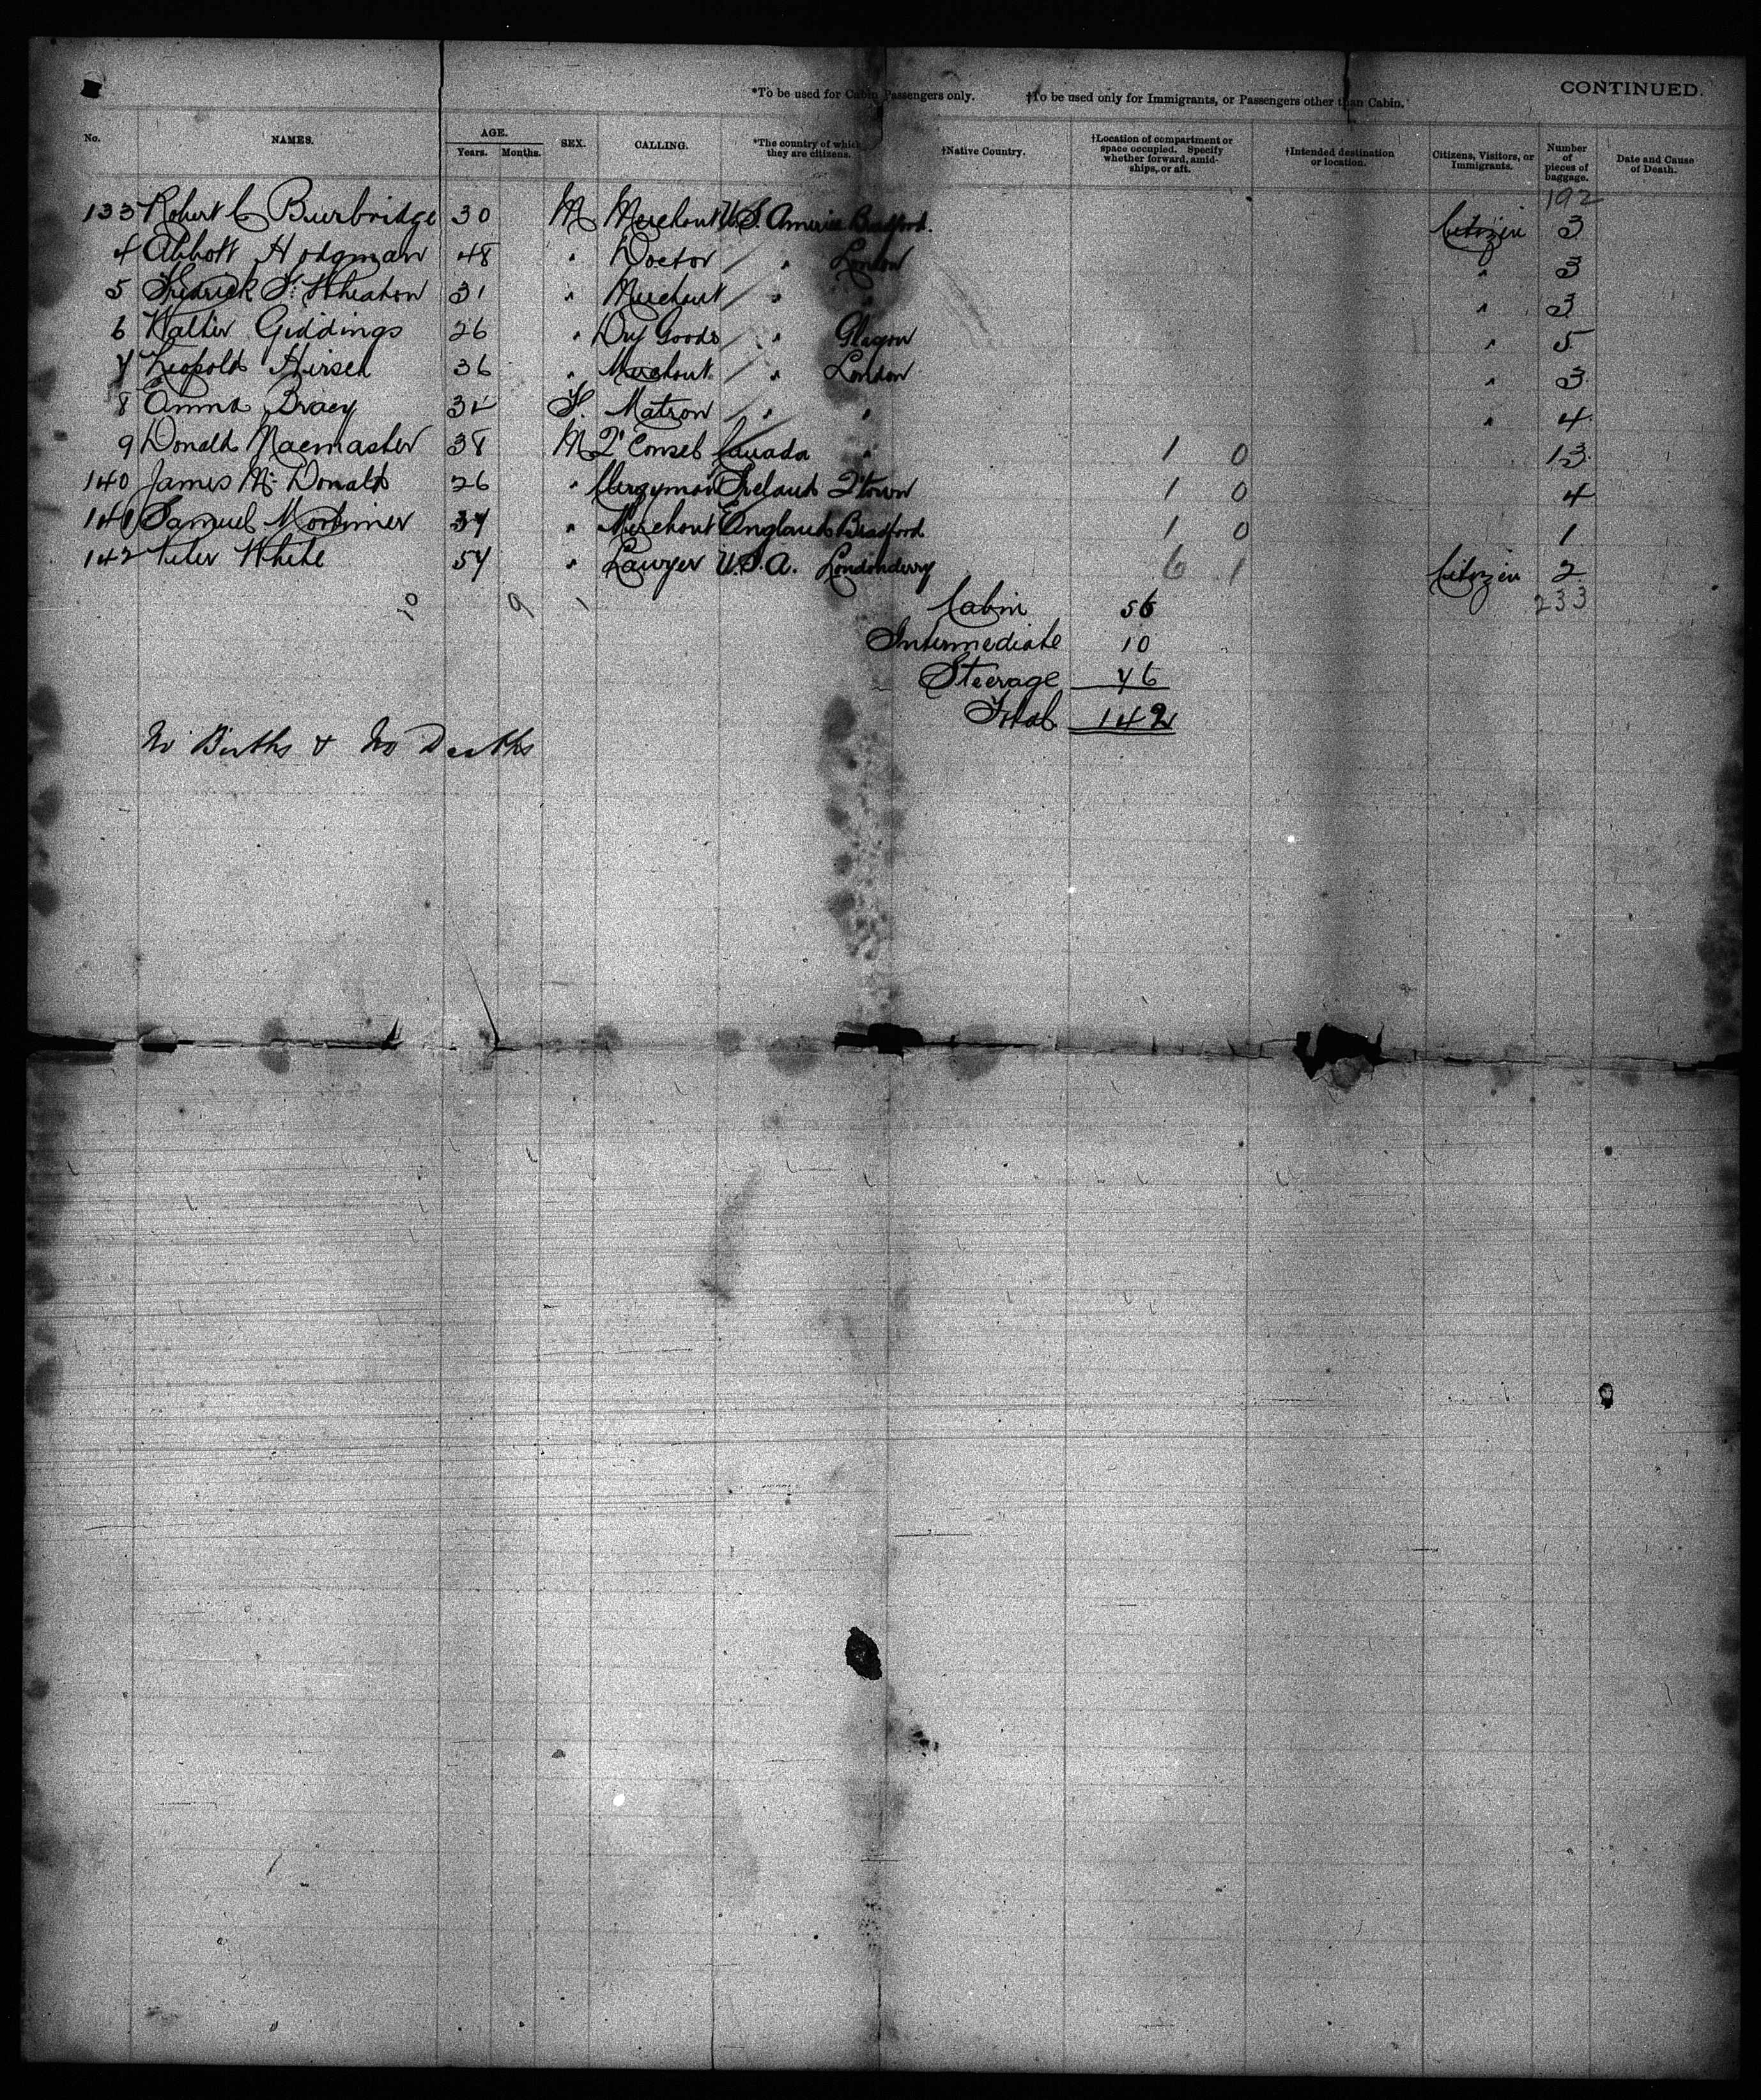 CONTINUED.
*To be used for Cabin Passengers only. †To be used only for Immigrants, or Passengers other than Cabin.
No. NAMES. AGE. Years. Months. SEX. CALLING. *The country of which they are citizens. †Native Country. †Location of compartment or space occupied. Specify whether forward, amidships, or aft. †Intended destination or location. Citizens, Visitors, or Immigrants. Number of pieces of baggage. Date and Cause of Death.
192
133 Robert C Burbridge 30 M Merchant U.S. America Bradford. Citizen 3
4 Abbott Hodgman 48 " Doctor " London " 3
5 Fredrick S. Wheaton 31 " Merchant " " " 3
6 Walter Giddings 26 " Dry Goods " Glagow " 5
7 Leopold Hirsch 36 " Merchant " London " 3
8 Anna Bracy 32 F. Matron " " " 4
9 Donald Macmaster 38 M Q' Consel Canada " 1 0 13
140 James Mc Donald 26 " Clergyman Ireland Q'town 1 0 4
141 Samuel Mortimer 37 " Merchant England Bradford. 1 0 1
142 Peter White 54 " Lawyer U.S.A. Londonderry 6 1 Citizen 2
10 9 1 233
Cabin 56
Intermediate 10
Steerage 76
Total 142
No Births & No Deaths